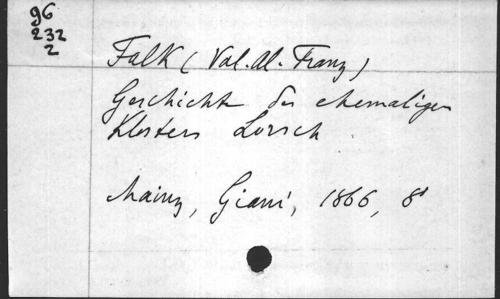 96
232
2
Falk (Val. Al. Franz)
Geschichte des ehemaligen
Klosters Lorsch.
Mainz, Giani, 1866, 8°